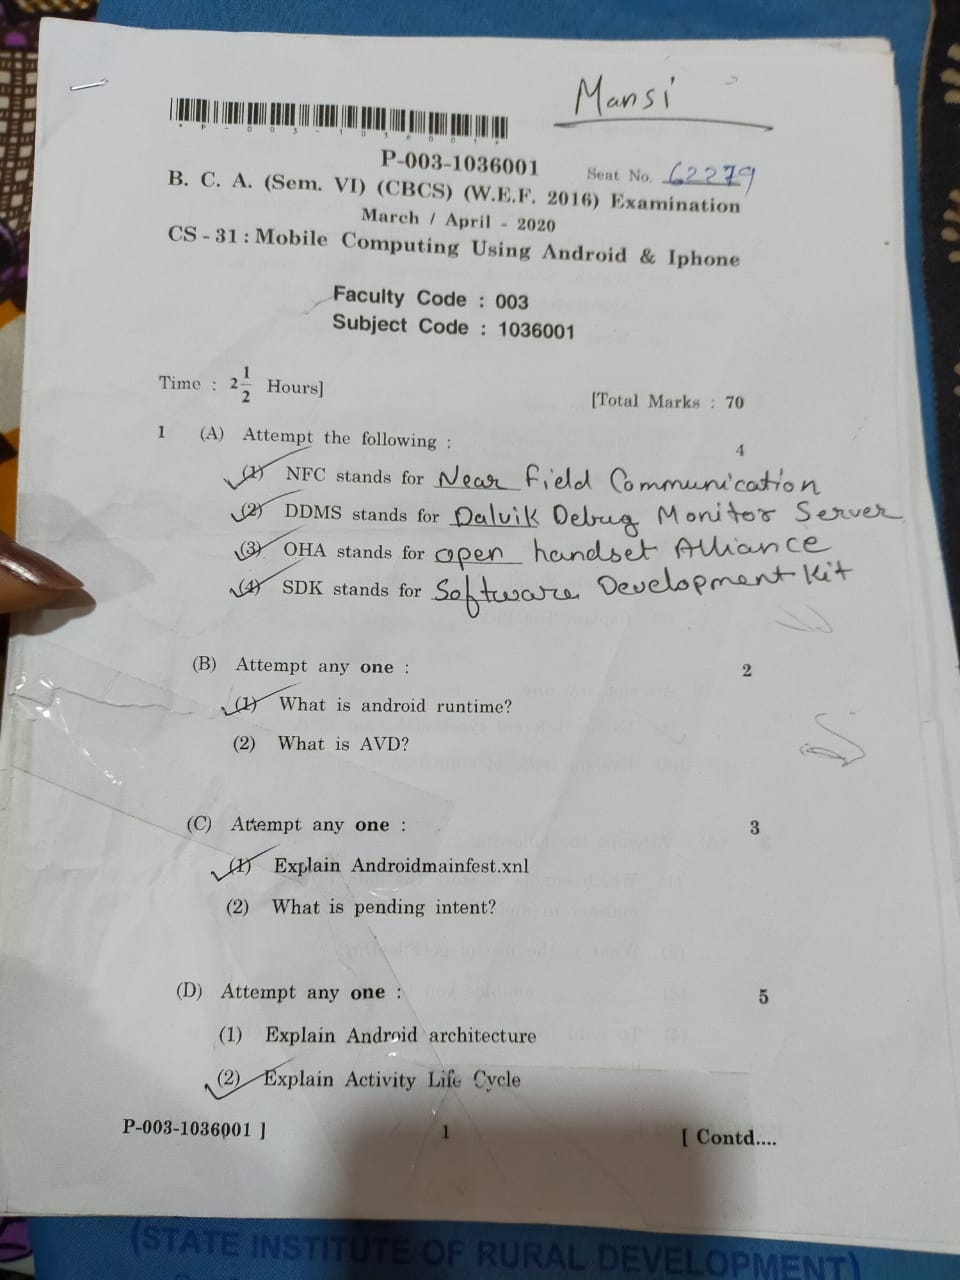 Mansi
P-003-1036001
Seat No. 62279
B. C. A. (Sem. VI) (CBCS) (W.E.F. 2016) Examination
March / April - 2020
CS - 31 : Mobile Computing Using Android & Iphone
Faculty Code : 003
Subject Code : 1036001
Time : 2 1/2 Hours]
[Total Marks : 70
1 (A) Attempt the following : 4
(1) NFC stands for Near Field Communication
(2) DDMS stands for Dalvik Debug Monitor Server
(3) OHA stands for open handset Alliance
(4) SDK stands for Software Development Kit
(B) Attempt any one : 2
(1) What is android runtime?
(2) What is AVD?
(C) Attempt any one : 3
(1) Explain Androidmainfest.xnl
(2) What is pending intent?
(D) Attempt any one : 5
(1) Explain Android architecture
(2) Explain Activity Life Cycle
P-003-1036001 ] 1 [ Contd....
(STATE INSTITUTE OF RURAL DEVELOPMENT)